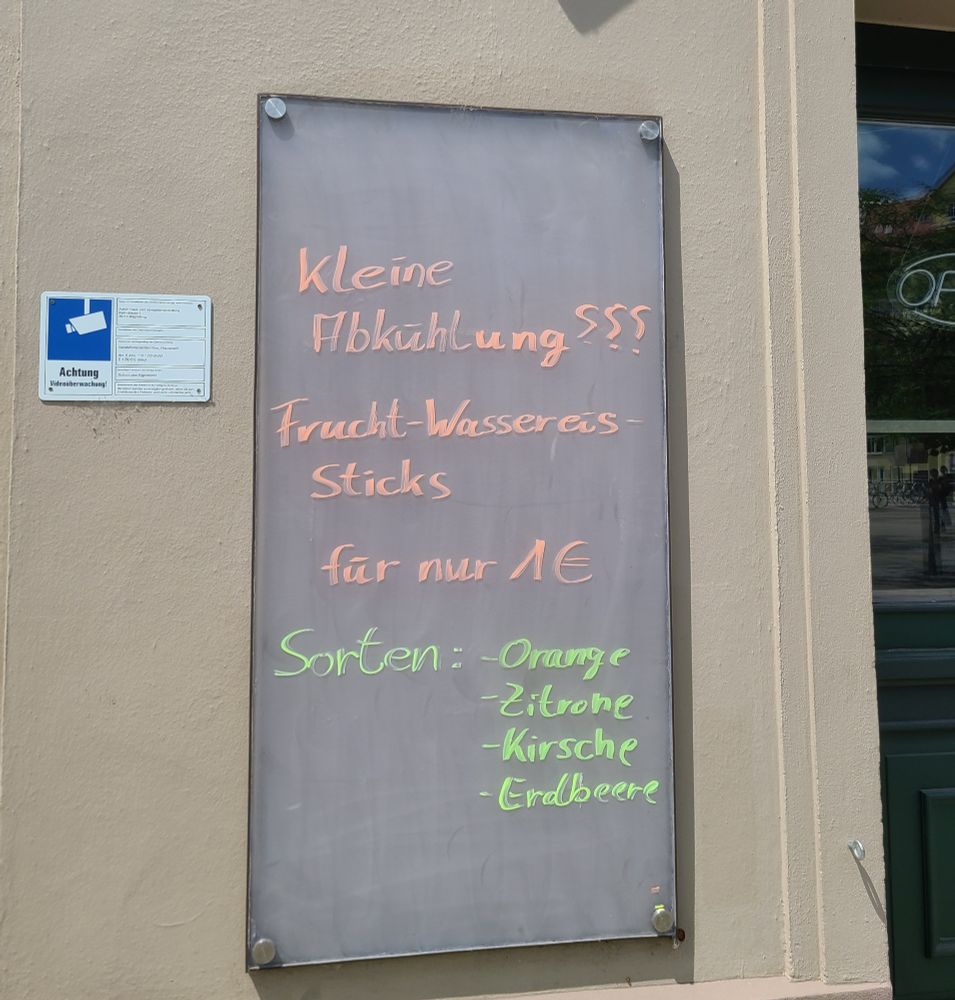 Kleine
Abkühlung???
Frucht-Wassereis-
Sticks
für nur 1€
Sorten: -Orange
-Zitrone
-Kirsche
-Erdbeere
Achtung
Videoüberwachung!